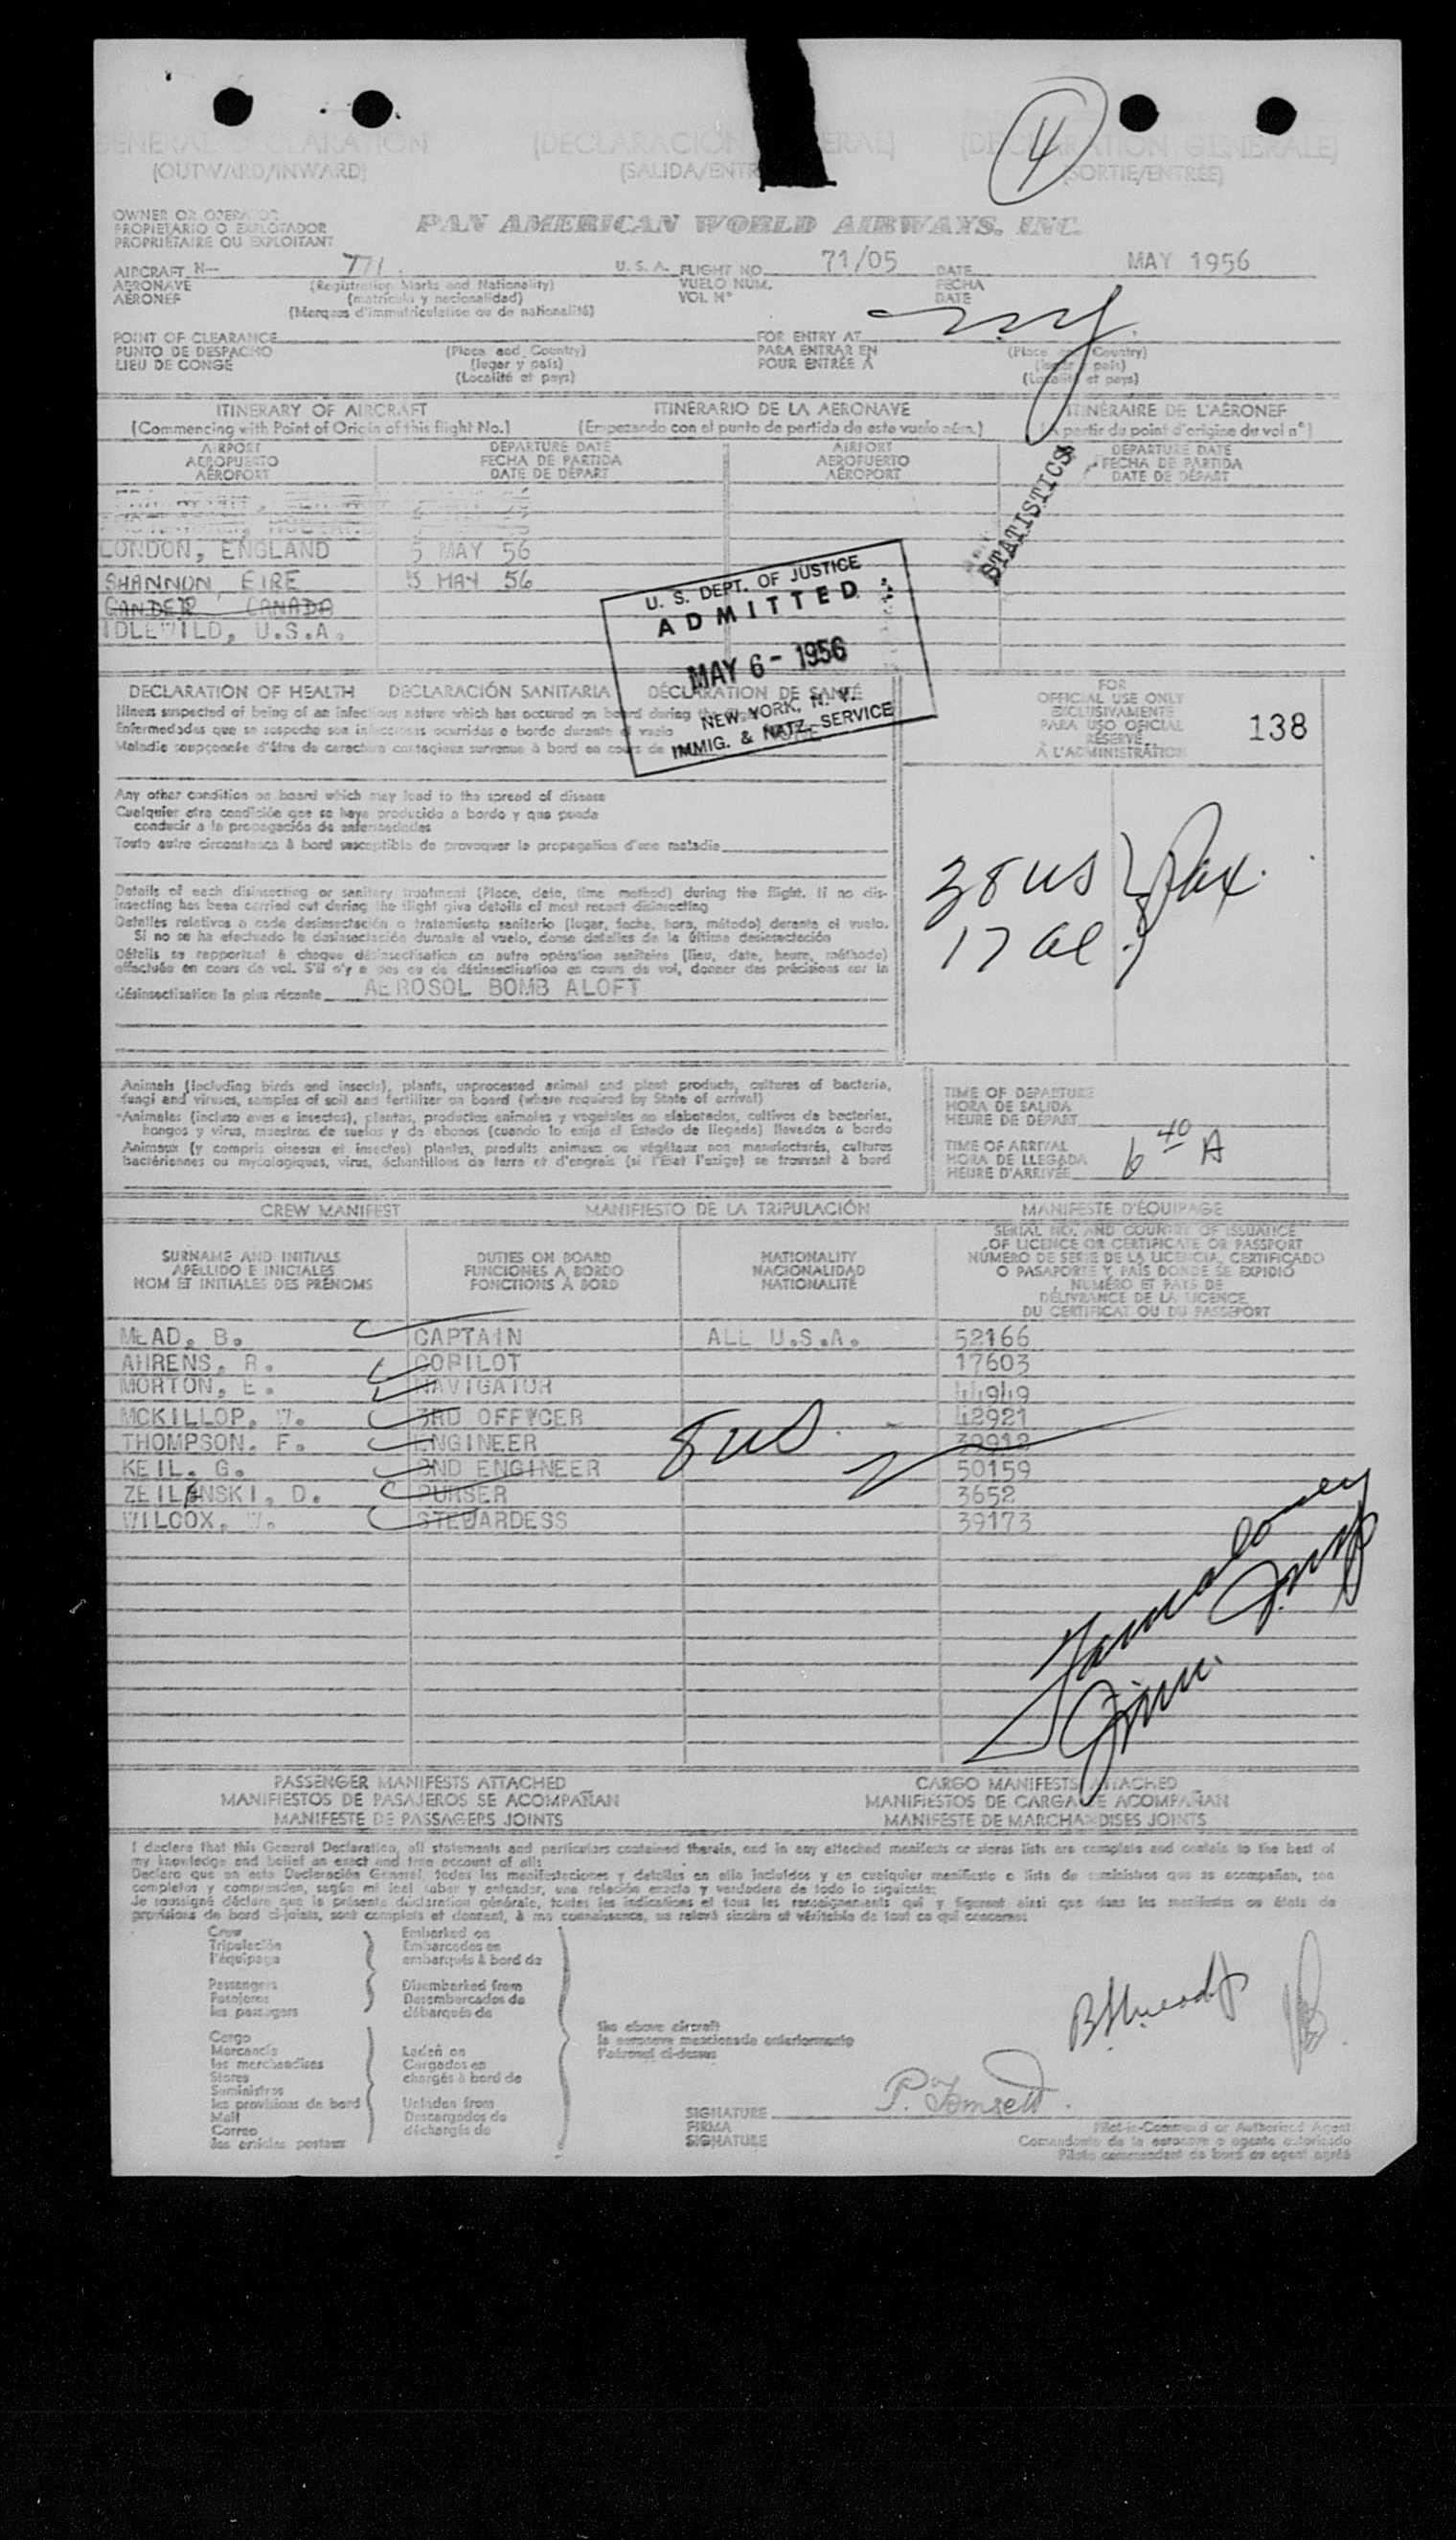 4
GENERAL DECLARATION
(OUTWARD/INWARD)
(SALIDA/ENTR
SORTIE/ENTRÉE)
OWNER OR OPERATOR
PROPIETARIO O EXPLOTADOR
PROPRIÉTAIRE OU EXPLOITANT
PAN AMERICAN WORLD AIRWAYS, INC.
AIRCRAFT N— 771 U. S. A. FLIGHT NO. 71/05 DATE MAY 1956
AERONAVE (Registration Marks and Nationality) VUELO NUM. FECHA
AÉRONEF (matricula y nacionalidad) VOL N° DATE
(Marques d'immatriculation ou de nationalité)
ny
POINT OF CLEARANCE FOR ENTRY AT
PUNTO DE DESPACHO (Place and Country) PARA ENTRAR EN (Place and Country)
LIEU DE CONGE (lugar y pais) POUR ENTRÉE À (lugar y pais)
(Localité et pays) (Localité et pays)
ITINERARY OF AIRCRAFT ITINERARIO DE LA AERONAVE ITINÉRAIRE DE L'AÉRONEF
(Commencing with Point of Origin of this flight No.) (Empezando con el punto de partida de este vuelo núm.) (à partir du point d'origine du vol n°)
AIRPORT DEPARTURE DATE AIRPORT DEPARTURE DATE
AEROPUERTO FECHA DE PARTIDA AEROPUERTO FECHA DE PARTIDA
AÉROPORT DATE DE DÉPART AÉROPORT DATE DE DÉPART
STATISTICS
LONDON, ENGLAND 5 MAY 56
SHANNON, EIRE 5 MAY 56
GANDER CANADA
IDLEWILD, U.S.A.
U. S. DEPT. OF JUSTICE
ADMITTED
MAY 6 - 1956
NEW YORK, N. Y.
IMMIG. & NATZ. SERVICE
DECLARATION OF HEALTH DECLARACIÓN SANITARIA DÉCLARATION DE SANTÉ
Illness suspected of being of an infectious nature which has occured on board during the flight
Enfermedades que se sospeche son infecciosas ocurridas a bordo durante el vuelo
Maladie soupçonnée d'être de caractère contagieux survenue à bord en cours de
FOR
OFFICIAL USE ONLY
EXCLUSIVAMENTE
PARA USO OFICIAL
RÉSERVÉ
À L'ADMINISTRATION
138
Any other condition on board which may lead to the spread of disease
Cualquier otra condición que se haya producido a bordo y que pueda
conducir a la propagación de enfermedades
Toute autre circonstance à bord susceptible de provoquer la propagation d'une maladie
38 US } Pax.
17 al
Details of each disinsecting or sanitary treatment (Place, date, time method) during the flight. If no dis-
insecting has been carried out during the flight give details of most recent disinsecting
Detalles relativos a cada desinsectación o tratamiento sanitario (lugar, fecha, hora, método) durante el vuelo.
Si no se ha efectuado la desinsectación durante el vuelo, dense detalles de la última desinsectación
Détails se rapportant à chaque désinsectisation ou autre opération sanitaire (lieu, date, heure, méthode)
effectuée en cours de vol. S'il n'y a pas eu de désinsectisation en cours de vol, donner des précisions sur la
désinsectisation la plus récente AEROSOL BOMB ALOFT
Animals (including birds and insects), plants, unprocessed animal and plant products, cultures of bacteria,
fungi and viruses, samples of soil and fertilizer on board (where required by State of arrival)
Animales (incluso aves e insectos), plantas, productos animales y vegetales no elaborados, cultivos de bacterias,
hongos y virus, muestras de suelos y de abonos (cuando lo exija el Estado de llegada) llevados a bordo
Animaux (y compris oiseaux et insectes) plantes, produits animaux ou végétaux non manufacturés, cultures
bactériennes ou mycologiques, virus, échantillons de terre et d'engrais (si l'Etat l'exige) se trouvant à bord
TIME OF DEPARTURE
HORA DE SALIDA
HEURE DE DEPART
TIME OF ARRIVAL
HORA DE LLEGADA
HEURE D'ARRIVÉE 6 40 A
CREW MANIFEST MANIFIESTO DE LA TRIPULACIÓN MANIFESTE D'ÉQUIPAGE
SURNAME AND INITIALS
APELLIDO E INICIALES
NOM ET INITIALES DES PRÉNOMS
DUTIES ON BOARD
FUNCIONES A BORDO
FONCTIONS À BORD
NATIONALITY
NACIONALIDAD
NATIONALITÉ
SERIAL NO. AND COUNTRY OF ISSUANCE
OF LICENCE OR CERTIFICATE OR PASSPORT
NÚMERO DE SERIE DE LA LICENCIA, CERTIFICADO
O PASAPORTE Y PAÍS DONDE SE EXPIDIÓ
NUMÉRO ET PAYS DE
DÉLIVRANCE DE LA LICENCE
DU CERTIFICAT OU DU PASSEPORT
MEAD, B. CAPTAIN ALL U.S.A. 52166
AHRENS, R. COPILOT 17603
MORTON, E. NAVIGATOR 44949
MCKILLOP, W. 3RD OFFICER 42921
THOMPSON, F. ENGINEER 39912
KEIL, G. 2ND ENGINEER 50159
ZEILENSKI, D. PURSER 3652
WILCOX, W. STEWARDESS 39173
8 US
PASSENGER MANIFESTS ATTACHED CARGO MANIFESTS ATTACHED
MANIFIESTOS DE PASAJEROS SE ACOMPAÑAN MANIFIESTOS DE CARGA SE ACOMPAÑAN
MANIFESTE DE PASSAGERS JOINTS MANIFESTE DE MARCHANDISES JOINTS
I declare that this General Declaration, all statements and particulars contained therein, and in any attached manifests or stores lists are complete and contain to the best of
my knowledge and belief an exact and true account of all:
Declaro que en esta Declaración General, todas las manifestaciones y detalles en ella incluidos y en cualquier manifiesto o lista de suministros que se acompañan, son
completos y comprenden, según mi leal saber y entender, una relación exacta y verdadera de todo lo siguiente:
Je soussigné déclare que la présente déclaration générale, toutes les indications et tous les renseignements qui y figurent ainsi que dans les manifestes ou états de
provisions de bord ci-joints, sont complets et donnent, à ma connaissance, un relevé sincère et véritable de tout ce qui concerne:
Crew Embarked on
Tripulación Embarcados en
l'équipage embarqués à bord de
Passengers Disembarked from
Pasajeros Desembarcados de
les passagers débarqués de
the above aircraft
la aeronave mencionada anteriormente
l'aéronef ci-dessus
Cargo
Mercancía Laden on
les merchandises Cargados en
Stores chargés à bord de
Suministros
les provisions de bord Unladen from
Mail Descargados de
Correo déchargés de
les articles postaux
SIGNATURE P. Tomsett
FIRMA
SIGNATURE
Pilot-in-Command or Authorized Agent
Comandante de la aeronave o agente autorizado
Pilote commandant de bord ou agent agréé